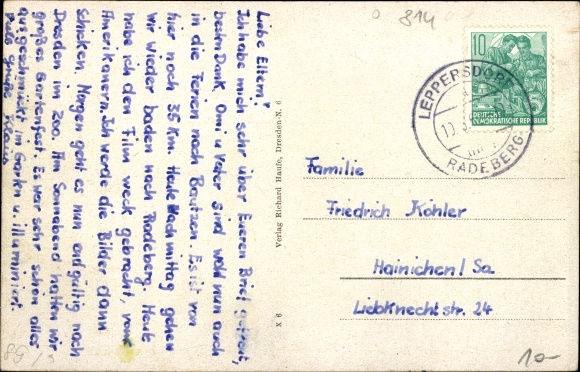 Liebe Eltern!
Ich habe mich sehr über Eueren Brief gefreut,
besten Dank. Omi u. Vater sind wohl nun auch
in die Ferien nach Bautzen. Es ist von
hier noch 35 Km. Heute Nachmittag gehen
wir wieder baden nach Radeberg. Heute
habe ich den Film weck gebracht, vom
Amerikanern. Ich werde die Bilder dann
schicken. Morgen geht es nun endgültig nach
Dresden im Zoo. Am Sonnabend hatten wir
großes Gartenfest. Es war sehr schön alles
ausgeschmückt im Garten u. illuminiert.
Grüße Klaus
Verlag Richard Haufe, Dresden-N. 6
X 6
814
10
DEUTSCHE
DEMOKRATISCHE REPUBLIK
LEPPERSDORF
RADEBERG
Familie
Friedrich Köhler
Hainichen / Sa.
Liebknechtstr. 24
89/3
10-